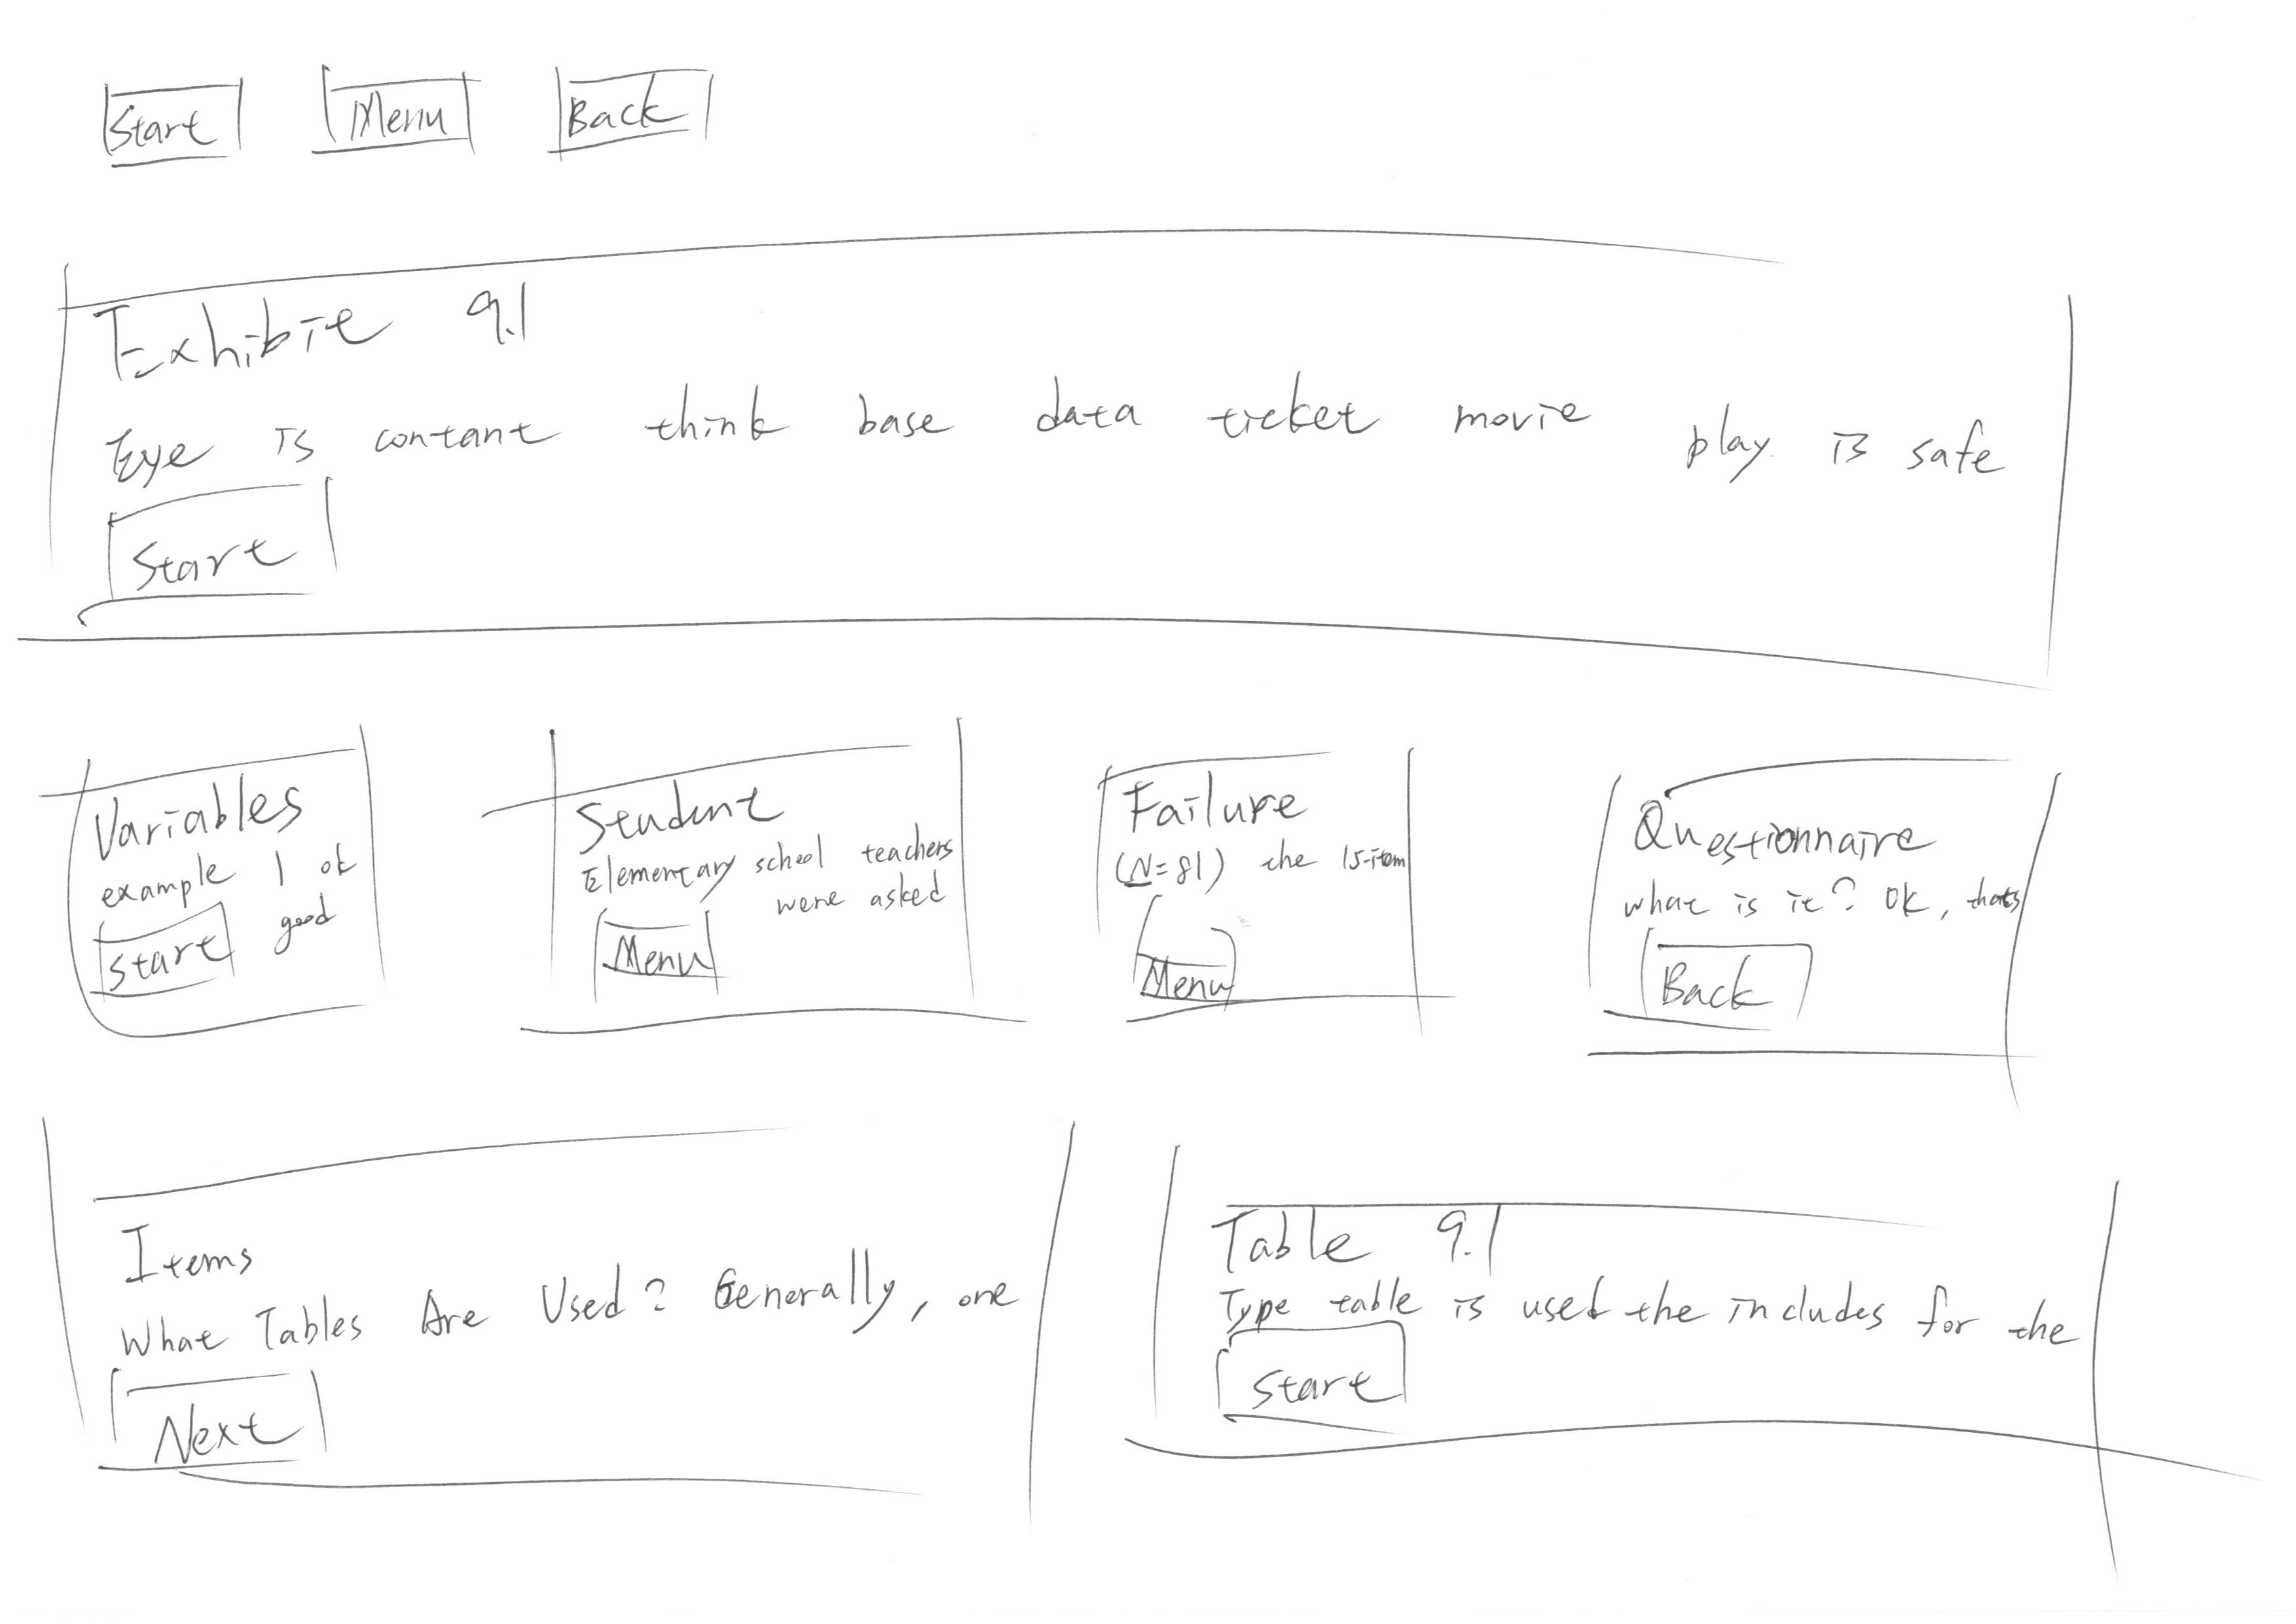 Start Menu Back
Exhibit 9.1
Eye is contant think base data ticket movie play is safe
Start
Variables
example 1 ok
good
Start
Student
Elementary school teachers
were asked
Menu
Failure
(N=81) the 15-item
Menu
Questionnaire
what is it? ok, thats
Back
Items
What Tables Are Used? Generally, one
Next
Table 9.1
Type table is used the includes for the
Start